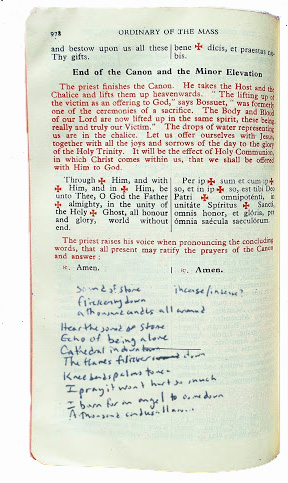 978 ORDINARY OF THE MASS
and bestow upon us all these
Thy gifts.
bene ✠ dicis, et præstas no-
bis.
End of the Canon and the Minor Elevation
The priest finishes the Canon. He takes the Host and the
Chalice and lifts them up heavenwards. " The lifting up of
the victim as an offering to God," says Bossuet, " was formerly
one of the ceremonies of a sacrifice. The Body and Blood
of our Lord are now lifted up in the same spirit, these being
really and truly our Victim." The drops of water representing
us are in the chalice. Let us offer ourselves with Jesus,
together with all the joys and sorrows of the day to the glory
of the Holy Trinity. It will be the effect of Holy Communion,
in which Christ comes within us, that we shall be offered
with Him to God.
Through ✠ Him, and with
✠ Him, and in ✠ Him, be
unto Thee, O God the Father
✠ almighty, in the unity of
the Holy ✠ Ghost, all honour
and glory, world without
end.
Per ip ✠ sum et cum ip ✠
so, et in ip ✠ so, est tibi Deo
Patri ✠ omnipoténti, in
unitáte Spíritus ✠ Sancti,
omnis honor, et glória, per
ómnia sæcula sæculórum.
The priest raises his voice when pronouncing the concluding
words, that all present may ratify the prayers of the Canon
and answer :
℟. Amen.
℟. Amen.
sound of stone
incense/incense?
flickering down
a thousand candles all around
Hear the sound of stone
Echo of being alone
Cathedral in
The flames flicker down
Knee bends palms to
I pray it won't hurt so much
I burn for an angel to come down
A thousand candles